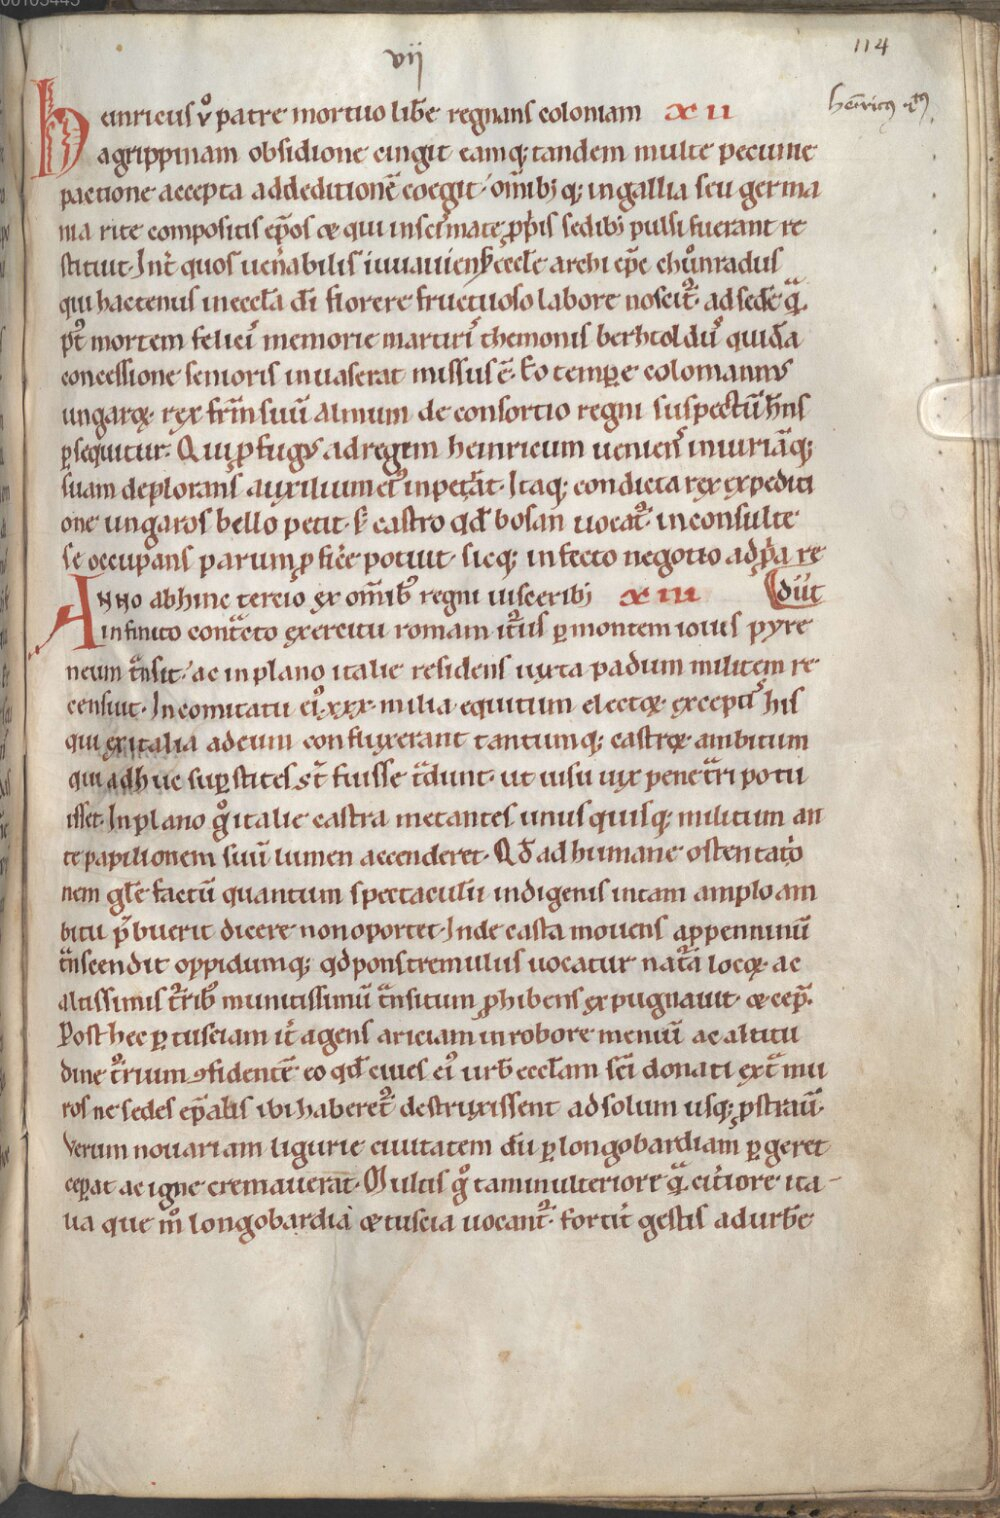 00103445
vij
114
henricus v͛ patre mortuo lib̅e regnans coloniam XII
henric9 .iiij9.
agrippinam obsidione cingit eamq; tandem multe pecunie
pactione accepta addeditione̅ coegit. om̅ibꝫ q; ingallia seu germa
nia rite compositis ep̅os & qui inscismate ꝓpriis sedibꝫ pulsi fuerant re
stituit. Int̅ quos uen̅abilis iuuauiens̅ eccl̅e archiep̅c chůnradus
qui hactenus ineccl̅a di̅ florere fructuoso labore noscit᷑. ad sede̅ qᷓ
p᷒t mortem felicis memorie martiris themonis berhtoldus quida̅
concessione senioris inuaserat missus e̅. Eo tempore colomannus
ungarꝝ rex fr̅m suu̅ almum de consortio regni suspectu̅ h̅ns
ꝑsequitur. Qui ꝓfugus ad regem heinricum ueniens iniuria̅q;
suam deplorans auxilium ei9 inpetrat. Itaq; condicta rex expediti
one ungaros bello petit. s; castro qd̅ bosan uocat᷑. inconsulte
se occupans parum ꝓficere potuit. sicq; infecto negotio ad ꝓpria re
Anno abhinc tercio ex om̅ib; regni uisceribꝫ XIII diit
infinito contracto exercitu romam iturus ꝑ montem iouis pyre
neum transit. ac inplano italie residens iuxta padum militem re
censuit. In comitatu ei9 .xxx. milia equitum electorꝝ. exceptis his
qui ex italia adeum confluxerant tantumq; castrorꝝ ambitum
qui adhuc suꝑstites s̅t fuisse tradunt. ut uisu uix penetrari potu
isset. In plano g̊ italie castra metantes unus quisq; militum an
te papilionem suu̅ lumen accenderet. Qd̅ ad humane ostentatio
nem gl̅e factu̅ quantum spectaculu̅ indigenis intam amplo am
bitu p̅buerit dicere non oportet. Inde castra mouens appenninu̅
transcendit oppidumq; qd̅ ponstremulus uocatur natura locorꝝ ac
altissimis turrib; munitissimu̅ transitum ꝓhibens expugnauit. & cep̅.
Post hec ꝑ tusciam it̅ agens ariciam in robore meniu̅ ac altitu
dine turrium ꝯfidente̅ eo qd̅ ciues ei9 urb̅ eccl̅am sc̅i donati extra mu
ros ne sedes ep̅alis ibi haberet᷑ destruxissent ad solum usq; ꝓstrauit.
Verum nouariam ligurie ciuitatem du̅ ꝑ longobardiam ꝑgeret
ceperat ac igne cremauerat. Multis g̊ tam inulteriore qᷓ citeriore ita
lia que m̊ longobardia & tuscia uocant᷑. fortit̅ gestis ad urb̅e